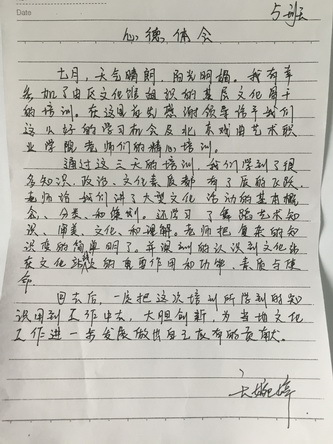 Date
5班
心德体会
七月，天气晴朗，阳光明媚。我有幸
参加了由区文化馆组织的基层文化骨干
的培训。在这里首先感谢领导给予我们
这么好的学习机会及北京戏曲艺术职
业学院老师们的精心培训。
通过这三天的培训，我们学到了很
多知识，政治、文化素质都有了质的飞跃，
老师给我们讲了大型文化活动的基本概
念、分类、和策划。还学习了舞蹈艺术知
识、审美、文化、和理解。老师把复杂的知
识变的简单明了。并深刻的认识到文化站
在文化战线的重要作用和功能、素质与使
命。
回去后，一定把这次培训所学到的知
识用到工作中去，大胆创新，为当地文化
工作进一步发展做出自己应有的贡献。